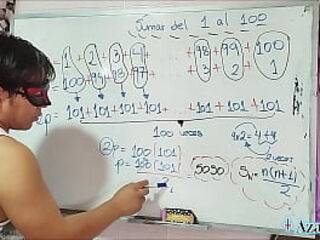 Sumar del 1 al 100
1 + 2 + 3 + 4 + +98 + 99 + 100
100 +99 +98 +97+ + 3 + 2 + 1
p= 101+101+101+101+ +101 +101 +101
100 veces
4x2 = 4+4
2p = 100(101)
2 veces
p = 100(101) = 5050 Sn = n(n+1)
2 2
+ Aza